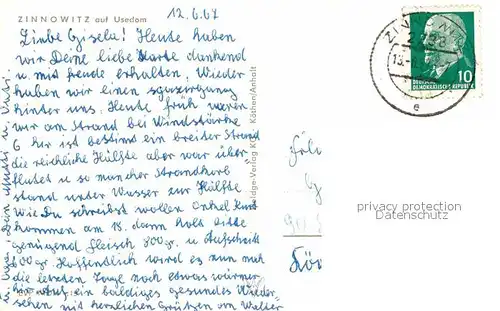 ZINNOWITZ auf Usedom
12.6.67
Liebe Gisela! Heute haben
wir Deine liebe Karte dankend
u. mit freude erhalten. Wieder
haben wir einen
hinter uns. Heute früh waren
wir am Strand bei Windstärke
6 hir ist bestimt ein breiter Strand
die reichliche Hülfte aber war über-
flutet u so mancher Strandkorb
stand unter Wasser zur Hülfte
Wie Du schreibst wollen Onkel Kurt
kommen am 18. dann holt bitte
genügend fleisch 800gr. u Aufschnitt
600gr. Hoffendlich wird es nun mal
die letzten Tage noch etwas wärmer
auf ein baldiges gesundes Wieder-
sehen mit herzlichen Grüßen von Walter
Köthen/Anhalt
ZINNOWITZ
2238
e
10
DEUTSCHE
DEMOKRATISCHE REPUBLIK
privacy protection
Datenschutz